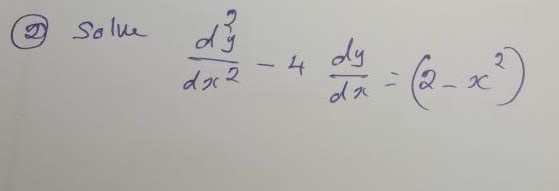 ② Solve d²y/dx² - 4 dy/dx = (2 - x²)